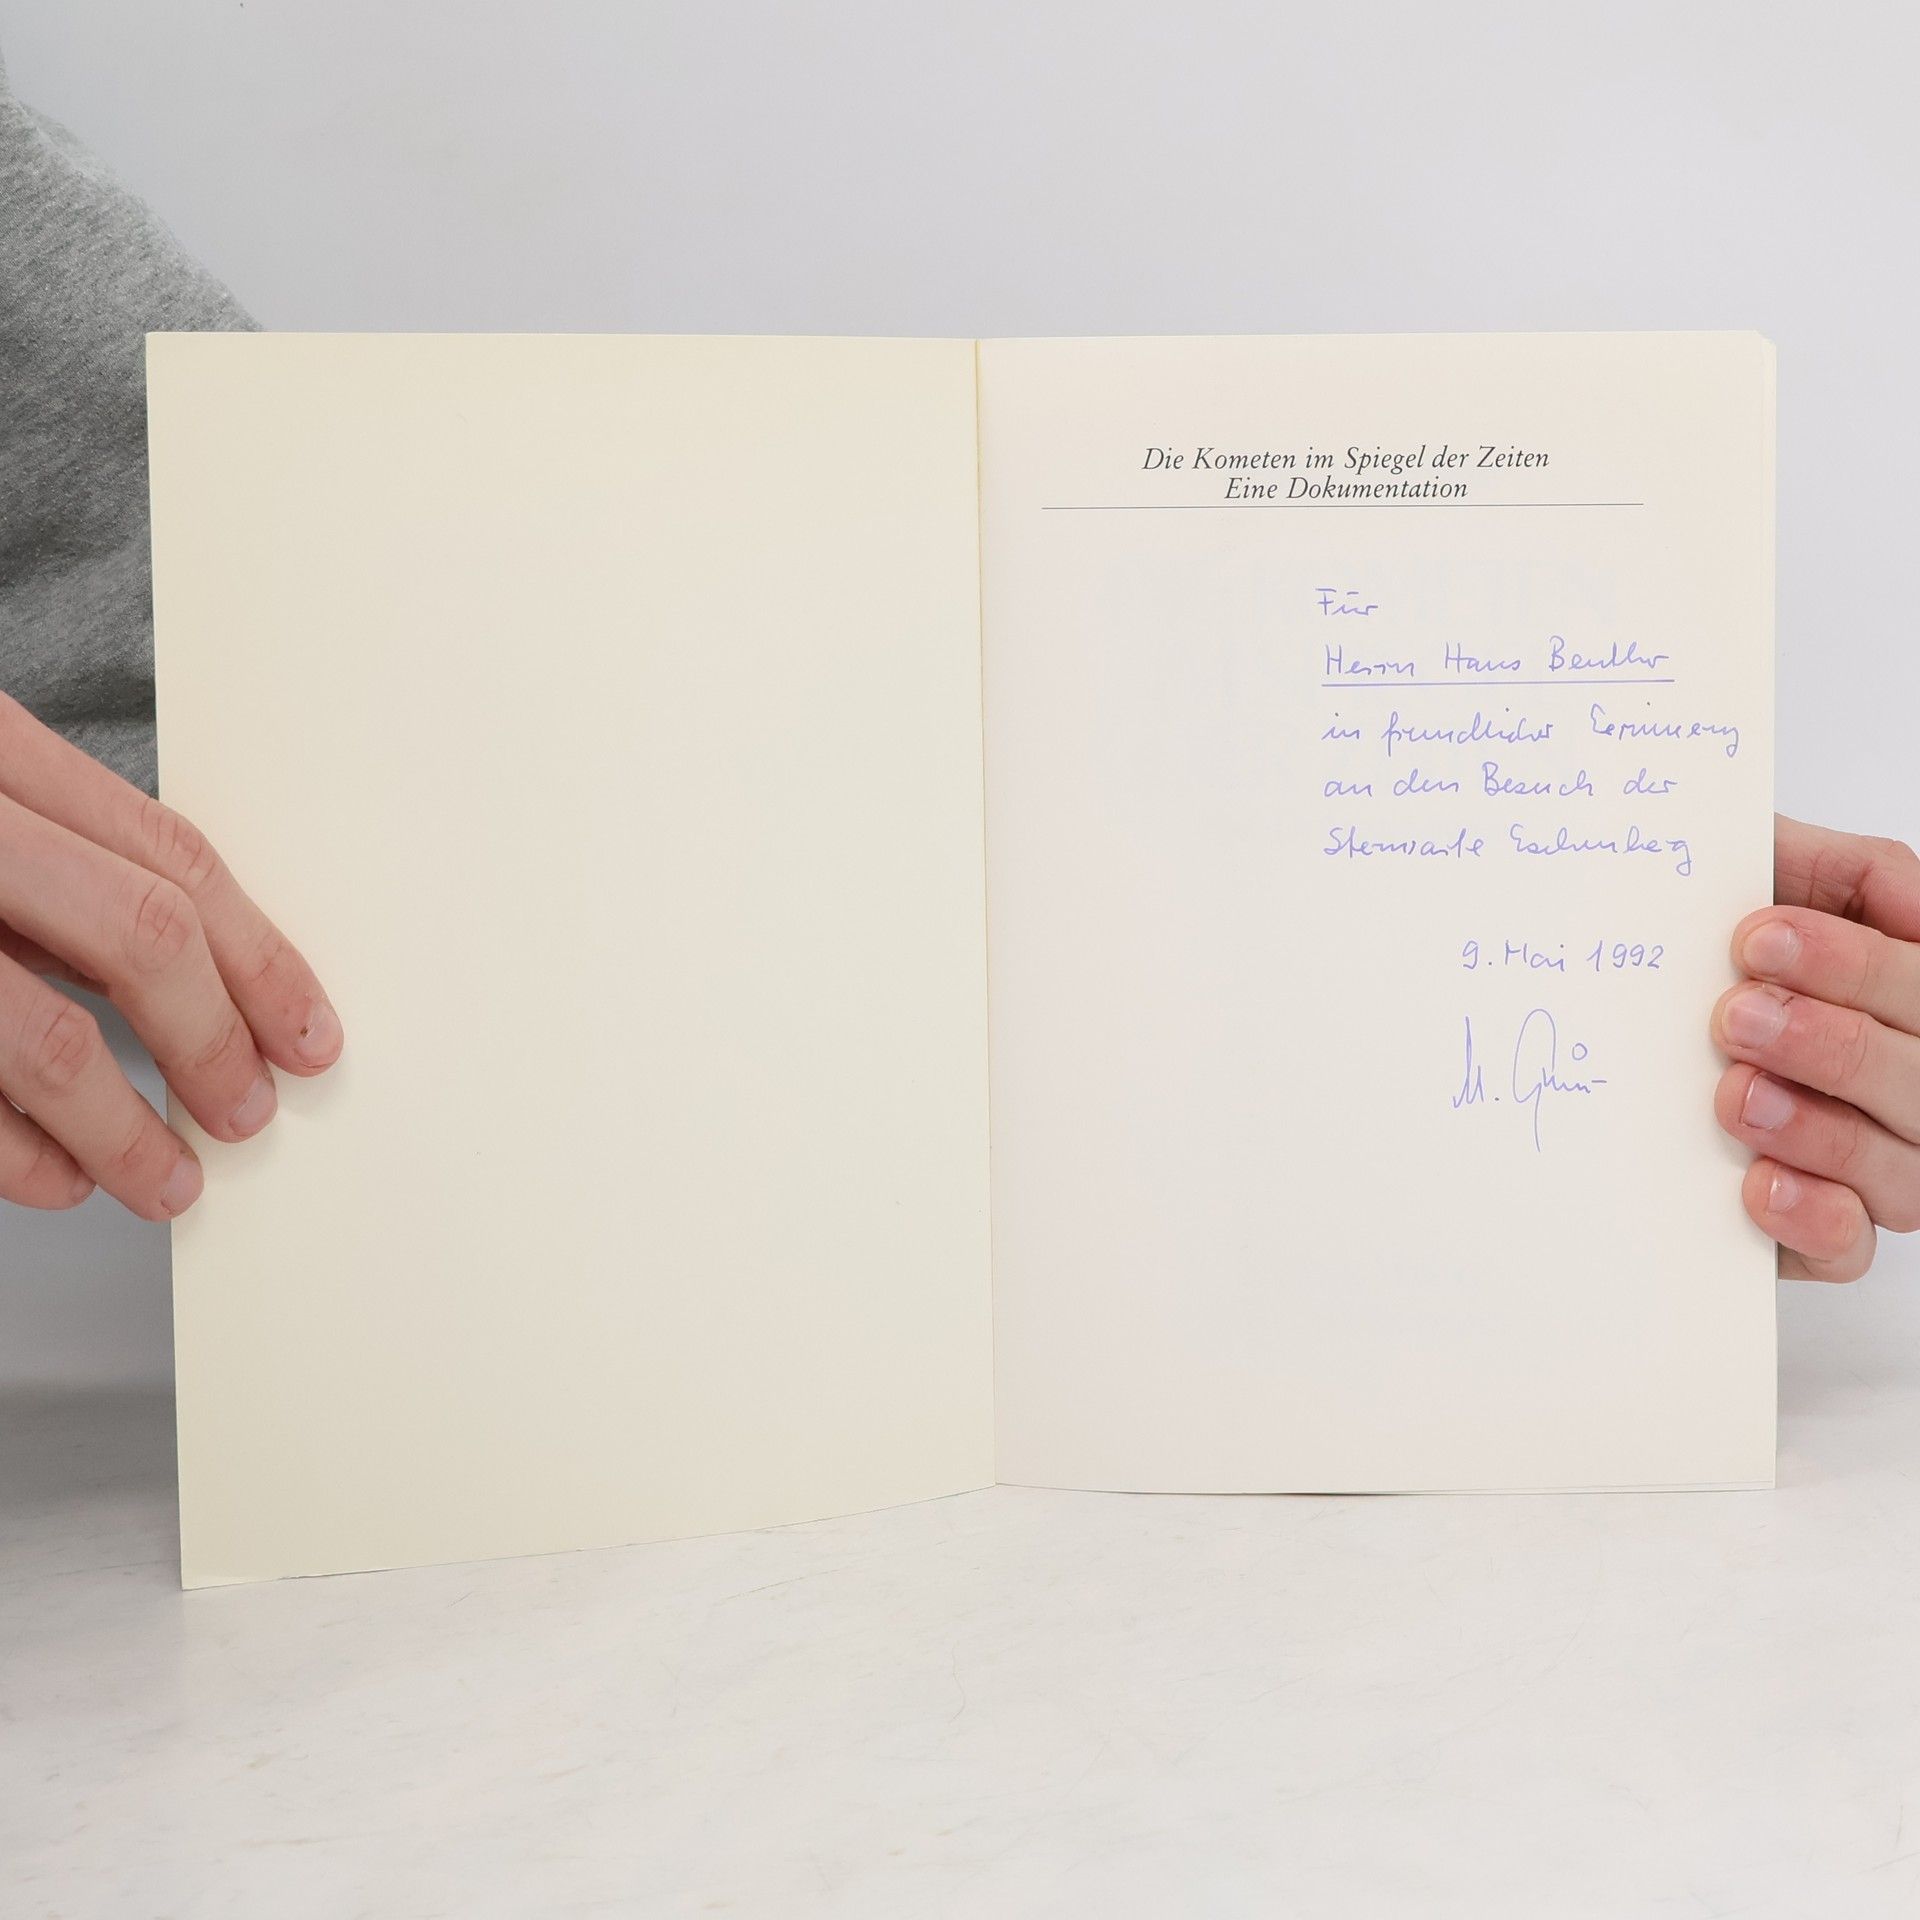 Die Kometen im Spiegel der Zeiten
Eine Dokumentation
Für
Herrn Hans
in freundlicher Erinnerung
an den Besuch der
Sternwarte Eschenberg
9. Mai 1992
M.